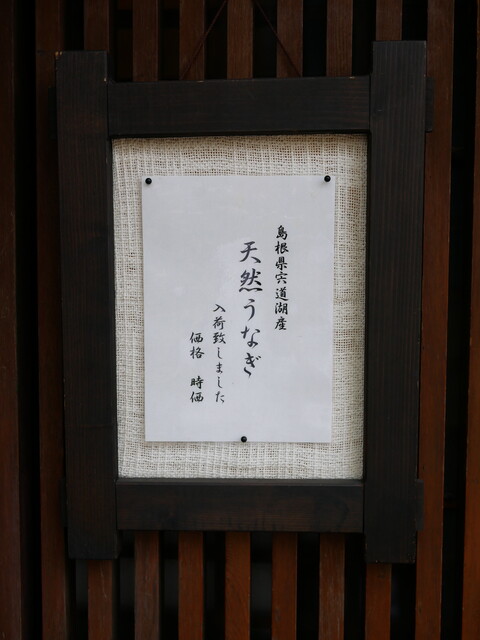 島根県宍道湖産
天然うなぎ
入荷致しました
価格 時価